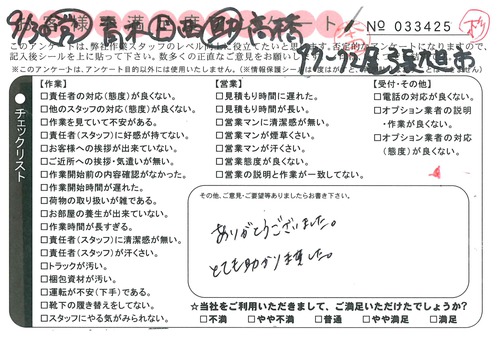 No 033425
このアンケートは、弊社作業スタッフのレベル向上に役立てたいと思います。否定的なアンケートになりますので、
記入後シールを上に貼って下さい。数多くの正直なご意見をお願い
※このアンケートは、アンケート目的以外には一切使用いたしません。(※情報保護シール
チェックリスト
【作業】
□責任者の対応(態度)が良くない。
□他のスタッフの対応(態度)が良くない。
□作業を見ていて不安がある。
□責任者(スタッフ)に好感が持てない。
□お客様への挨拶が出来ていない。
□ご近所への挨拶・気遣いが無い。
□作業開始前の内容確認がなかった。
□作業開始時間が遅れた。
□荷物の取り扱いが雑である。
□お部屋の養生が出来ていない。
□作業時間が長すぎる。
□責任者(スタッフ)に清潔感が無い。
□責任者(スタッフ)が汗くさい。
□トラックが汚い。
□梱包資材が汚い。
□運転が不安(下手)である。
□靴下の履き替えをしてない。
□スタッフにやる気がみられない。
【営業】
□見積もり時間に遅れた。
□見積もり時間が長い。
□営業マンに清潔感が無い。
□営業マンが煙草くさい。
□営業マンが汗くさい。
□営業態度が良くない。
□営業の説明と作業が一致してない。
【受付・その他】
□電話の対応が良くない。
□オプション業者の説明
・作業が良くない。
□オプション業者の対応
(態度)が良くない。
その他、ご意見・ご要望等ありましたらお書き下さい。
ありがとうございました。
とても助かりました。
☆当社をご利用いただきまして、ご満足いただけたでしょうか?
□不満 □やや不満 □普通 □やや満足 □満足